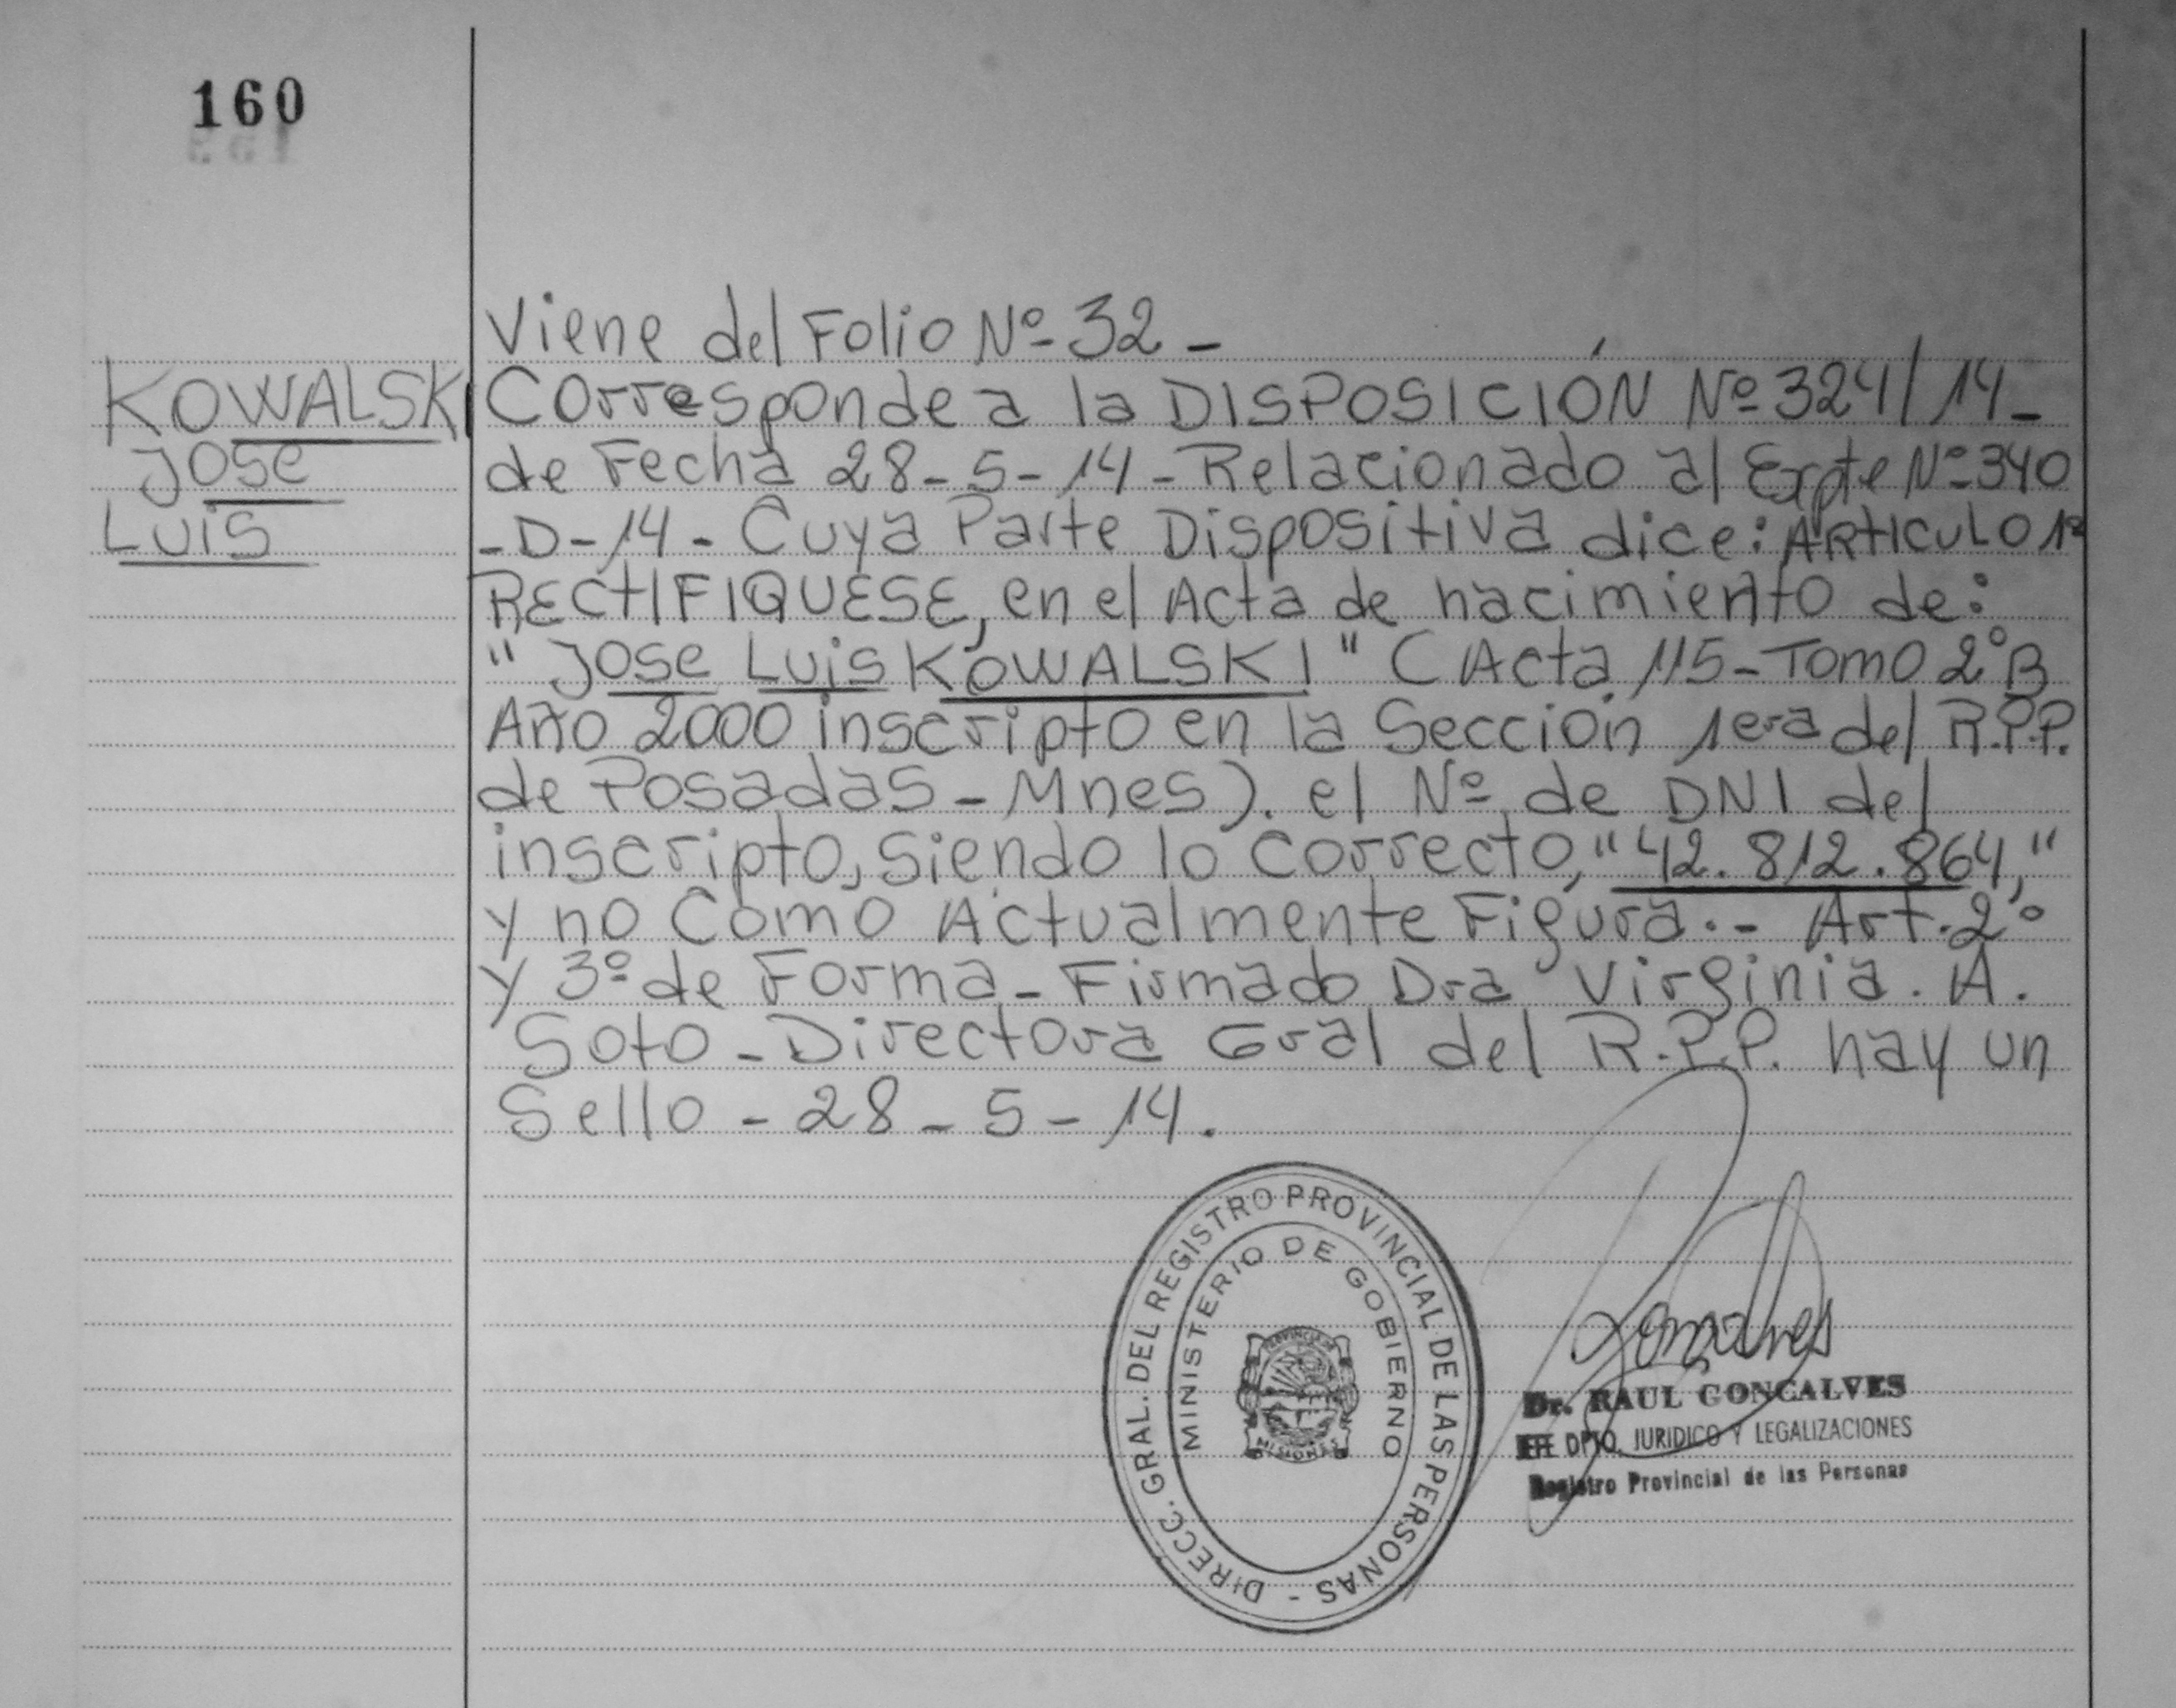 160
Viene del Folio Nº 32 -
KOWALSKI
Jose
Luis
Corresponde a la DISPOSICIÓN Nº 324/14 -
de Fecha 28-5-14 - Relacionado al Expte Nº 340
-D-14 - Cuya Parte Dispositiva dice: ARTICULO 1º
RECTIFIQUESE, en el Acta de nacimiento de:
"Jose Luis KOWALSKI" (Acta 115 - Tomo 2º B
Año 2000 inscripto en la Sección 1era del R.P.P.
de Posadas - Mnes). el Nº de DNI del
inscripto, siendo lo Correcto, "42.812.864,"
y no Como Actualmente Figura.- Art. 2º
y 3º de Forma - Firmado Dra Virginia. A.
Soto - Directora Gral del R.P.P. hay un
Sello - 28 - 5 - 14.
DIRECC. GRAL. DEL REGISTRO PROVINCIAL DE LAS PERSONAS -
MINISTERIO DE GOBIERNO
MISIONES
Goncalves
Dr. RAUL GONCALVES
JEFE DPTO. JURIDICO Y LEGALIZACIONES
Registro Provincial de las Personas